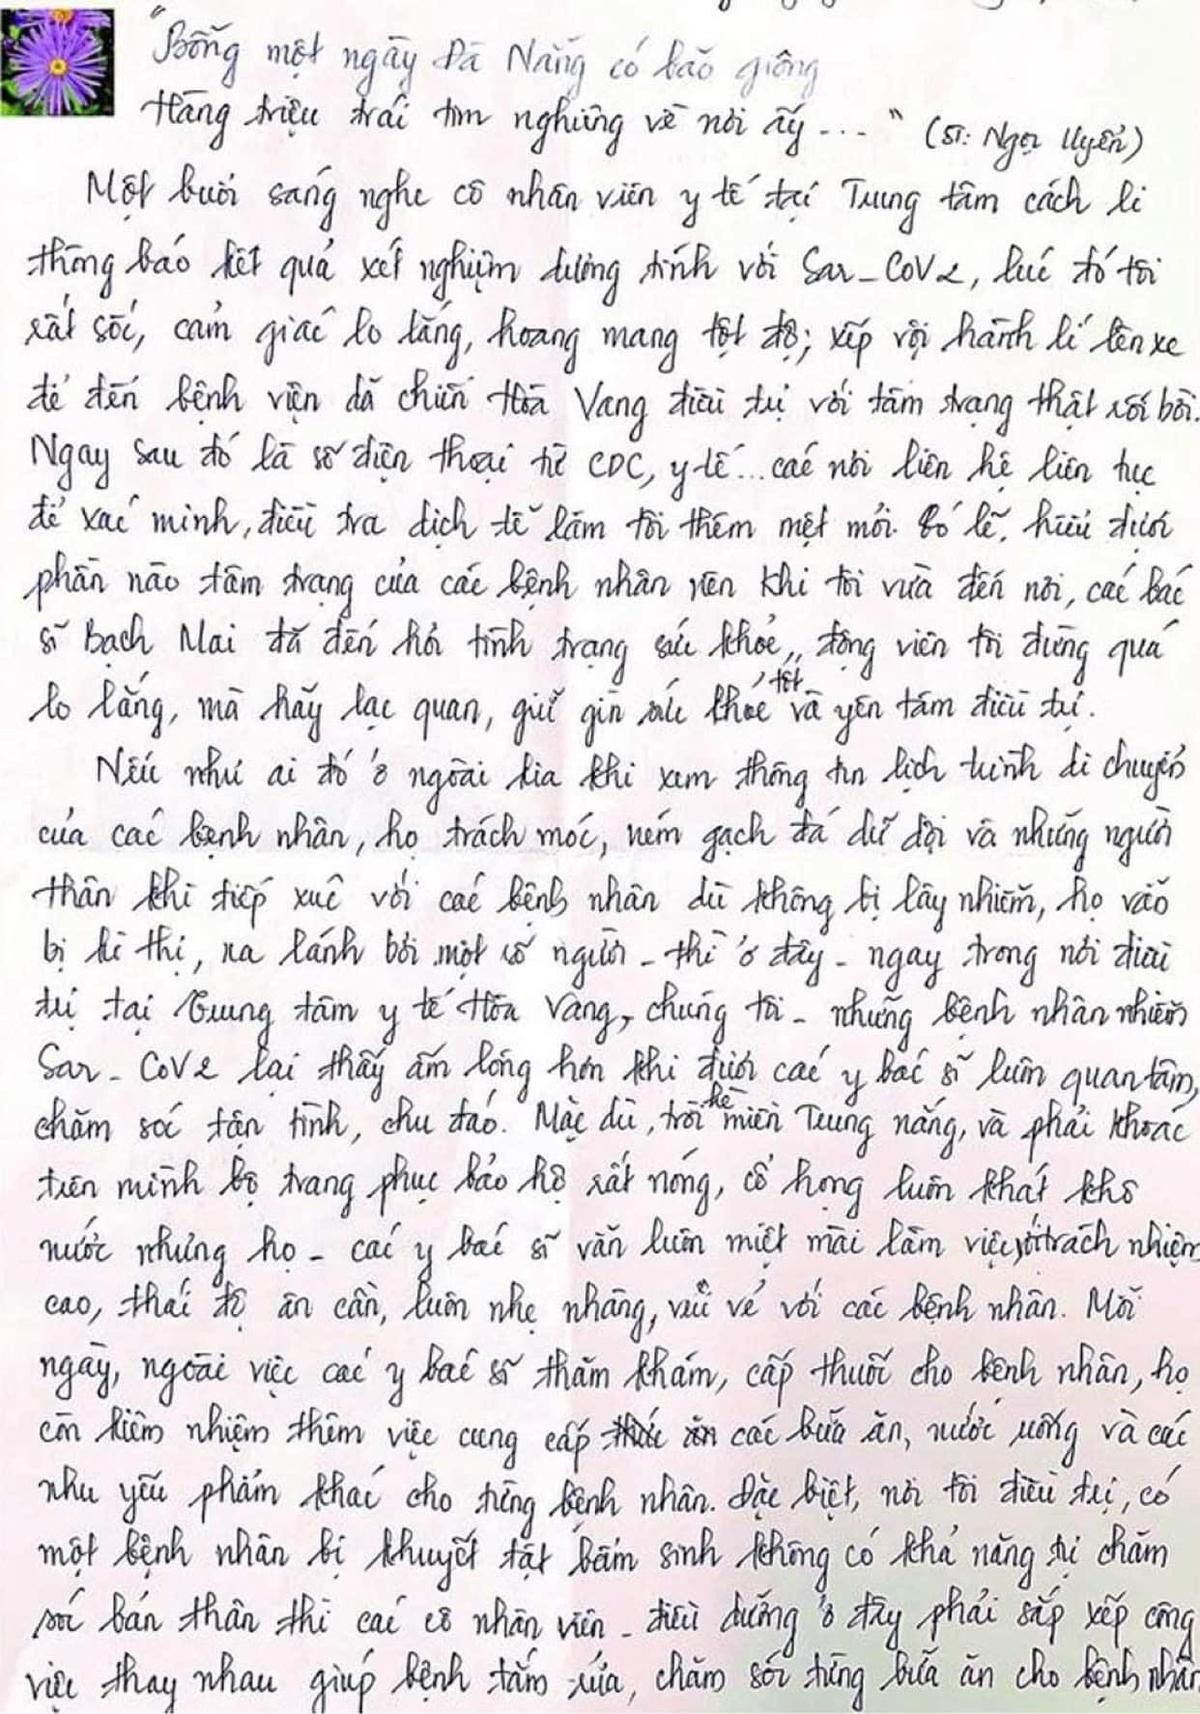 "Bỗng một ngày Đà Nẵng có bão giông
Hàng triệu trái tim nghiêng về nơi ấy..." (ST: Ngọc Uyển)
Một buổi sáng nghe cô nhân viên y tế tại Trung tâm cách li
thông báo kết quả xét nghiệm dương tính với Sar-CoV2, lúc đó tôi
rất sốc, cảm giác lo lắng, hoang mang tột độ; xếp vội hành lí lên xe
để đến bệnh viện dã chiến Hòa Vang điều trị với tâm trạng thật rối bời.
Ngay sau đó là số điện thoại từ CDC, y tế... các nơi liên hệ liên tục
để xác minh, điều tra dịch tễ làm tôi thêm mệt mỏi. Có lẽ, hiểu được
phần nào tâm trạng của các bệnh nhân nên khi tôi vừa đến nơi, các bác
sĩ Bạch Mai đã đến hỏi tình trạng sức khỏe, động viên tôi đừng quá
lo lắng, mà hãy lạc quan, giữ gìn sức khỏe tốt và yên tâm điều trị.
Nếu như ai đó ở ngoài kia khi xem thông tin lịch trình di chuyển
của các bệnh nhân, họ trách móc, ném gạch đá dữ dội và những người
thân khi tiếp xúc với các bệnh nhân dù không bị lây nhiễm, họ vẫn
bị kì thị, xa lánh bởi một số người - thì ở đây - ngay trong nơi điều
trị tại Trung tâm y tế Hòa Vang, chúng tôi - những bệnh nhân nhiễm
Sar-CoV2 lại thấy ấm lòng hơn khi được các y bác sĩ luôn quan tâm,
chăm sóc tận tình, chu đáo. Mặc dù, trời hè miền Trung nắng, và phải khoác
trên mình bộ trang phục bảo hộ rất nóng, cổ họng luôn khát khô
nước nhưng họ - các y bác sĩ vẫn luôn miệt mài làm việc với trách nhiệm
cao, thái độ ân cần, luôn nhẹ nhàng, vui vẻ với các bệnh nhân. Mỗi
ngày, ngoài việc các y bác sĩ thăm khám, cấp thuốc cho bệnh nhân, họ
còn kiêm nhiệm thêm việc cung cấp các bữa ăn, nước uống và các
nhu yếu phẩm khác cho từng bệnh nhân. Đặc biệt, nơi tôi điều trị, có
một bệnh nhân bị khuyết tật bẩm sinh không có khả năng tự chăm
sóc bản thân thì các cô nhân viên - điều dưỡng ở đây phải sắp xếp công
việc thay nhau giúp bệnh tắm rửa, chăm sóc từng bữa ăn cho bệnh nhân.